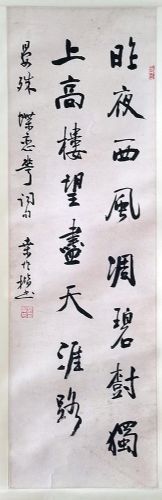 昨夜西風凋碧樹獨
上高樓望盡天涯路
晏殊 蝶恋花詞句